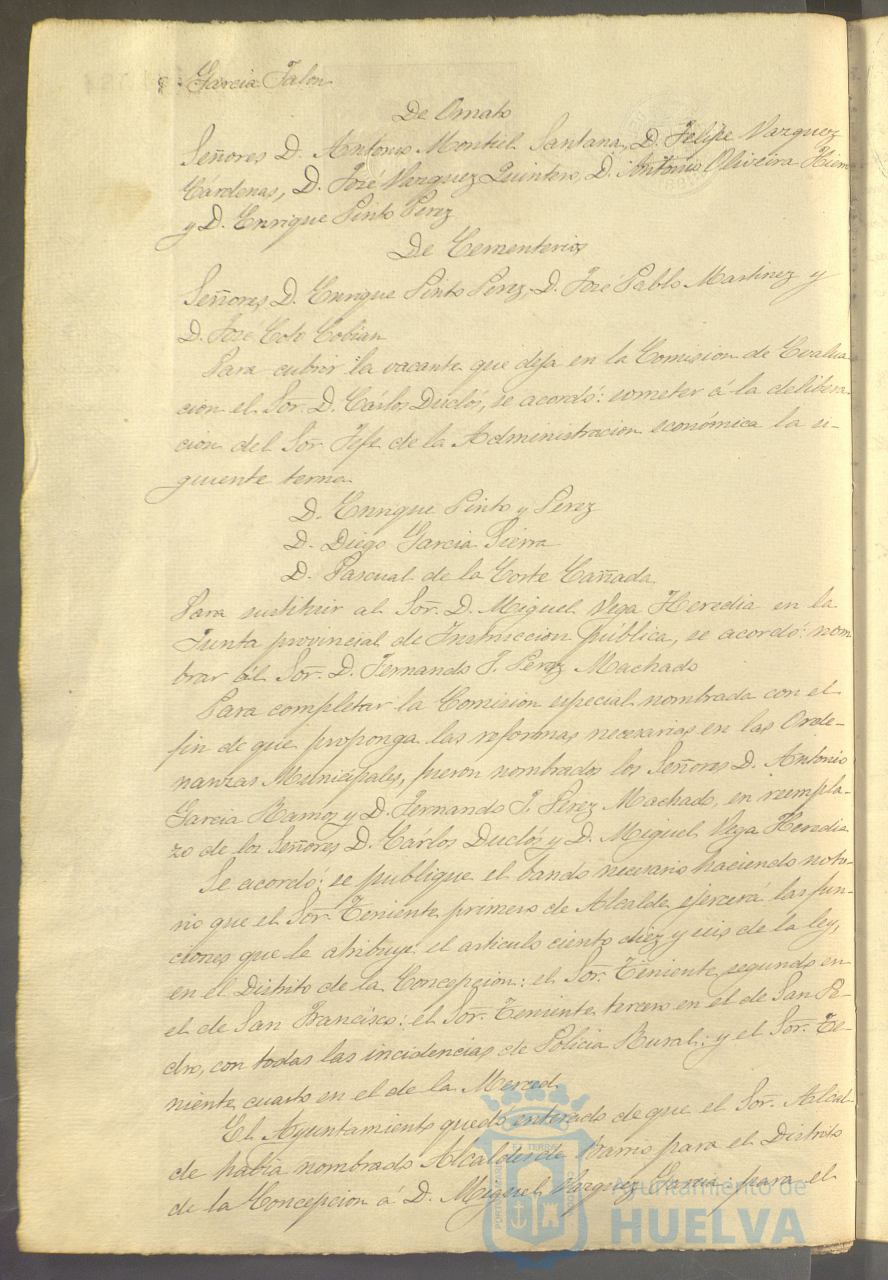 Garcia Talon
De Ornato
Señores D. Antonio Montiel Santana, D. Felipe Vazquez
Cárdenas, D. José Vazquez Quintero, D. Antonio Oliveira
y D. Enrique Pinto Perez
De Cementerios
Señores, D. Enrique Pinto Perez, D. José Pablo Martinez y
D. José Coto Cobian
Para cubrir la vacante que deja en la Comision de Evalua-
cion el Sor. D. Cárlos Duclós, se acordó: someter á la delibera-
cion del Sor. Jefe de la Administracion económica la si-
guiente terna.
D. Enrique Pinto y Perez
D. Diego Garcia Sierra
D. Pascual de la Corte Cañada
Para sustituir al Sor. D. Miguel Vega Heredia en la
Junta provincial de Instruccion pública, se acordó: nom
brar al Sor. D. Fernando J. Perez Machado
Para completar la Comision especial nombrada con el
fin de que proponga las reformas necesarias en las Orde-
nanzas Municipales, fueron nombrados los Señores D. Antonio
Garcia Ramos y D. Fernando J. Perez Machado, en reempla-
zo de los Señores D. Cárlos Duclós y D. Miguel Vega Heredia
Se acordó: se publique el bando necesario haciendo noto-
rio que el Sor. Teniente primero de Alcalde ejercerá las fun-
ciones que le atribuye el articulo ciento diez y seis de la ley,
en el Distrito de la Concepcion: el Sor. Teniente segundo en
el de San Francisco: el Sor. Teniente tercero en el de San Pe-
dro, con todas las incidencias de Policia Rural: y el Sor. Te-
niente cuarto en el de la Merced.
El Ayuntamiento quedó enterado de que el Sor. Alcal-
de habia nombrado Alcaldes de Barrio para el Distrito
de la Concepcion á D. Miguel Vazquez Garcia para el
Ayuntamiento de
HUELVA